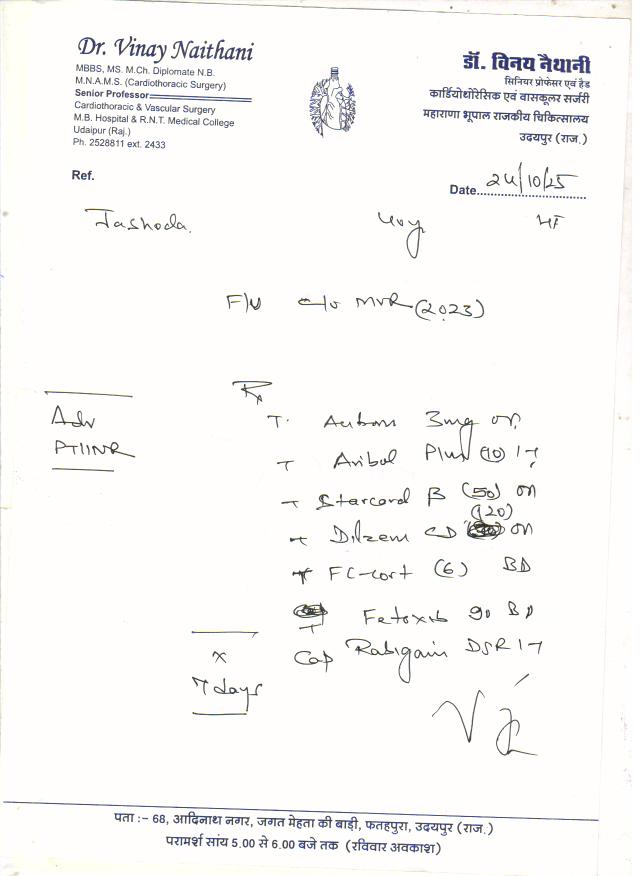 Dr. Vinay Naithani
MBBS, MS. M.Ch. Diplomate N.B.
M.N.A.M.S. (Cardiothoracic Surgery)
Senior Professor
Cardiothoracic & Vascular Surgery
M.B. Hospital & R.N.T. Medical College
Udaipur (Raj.)
Ph. 2528811 ext. 2433
डॉ. विनय नैथानी
सिनियर प्रोफेसर एवं हैड
कार्डियोथोरेसिक एवं वासकूलर सर्जरी
महाराणा भूपाल राजकीय चिकित्सालय
उदयपुर (राज.)
Ref.
Date 24/10/25
Jashoda.
F/U c/o MVR (2023)
Adv
PT/INR
Rx
T. 3mg
T Plus (10) 1
T Starcard B (50) on
(120)
T Dilzem CD on
T FC-cort (6) BD
T Fetoxib 90 BD
Cap Rabigain DSR 1
x
7 days
पता :– 68, आदिनाथ नगर, जगत मेहता की बाड़ी, फतहपुरा, उदयपुर (राज.)
परामर्श सांय 5.00 से 6.00 बजे तक (रविवार अवकाश)